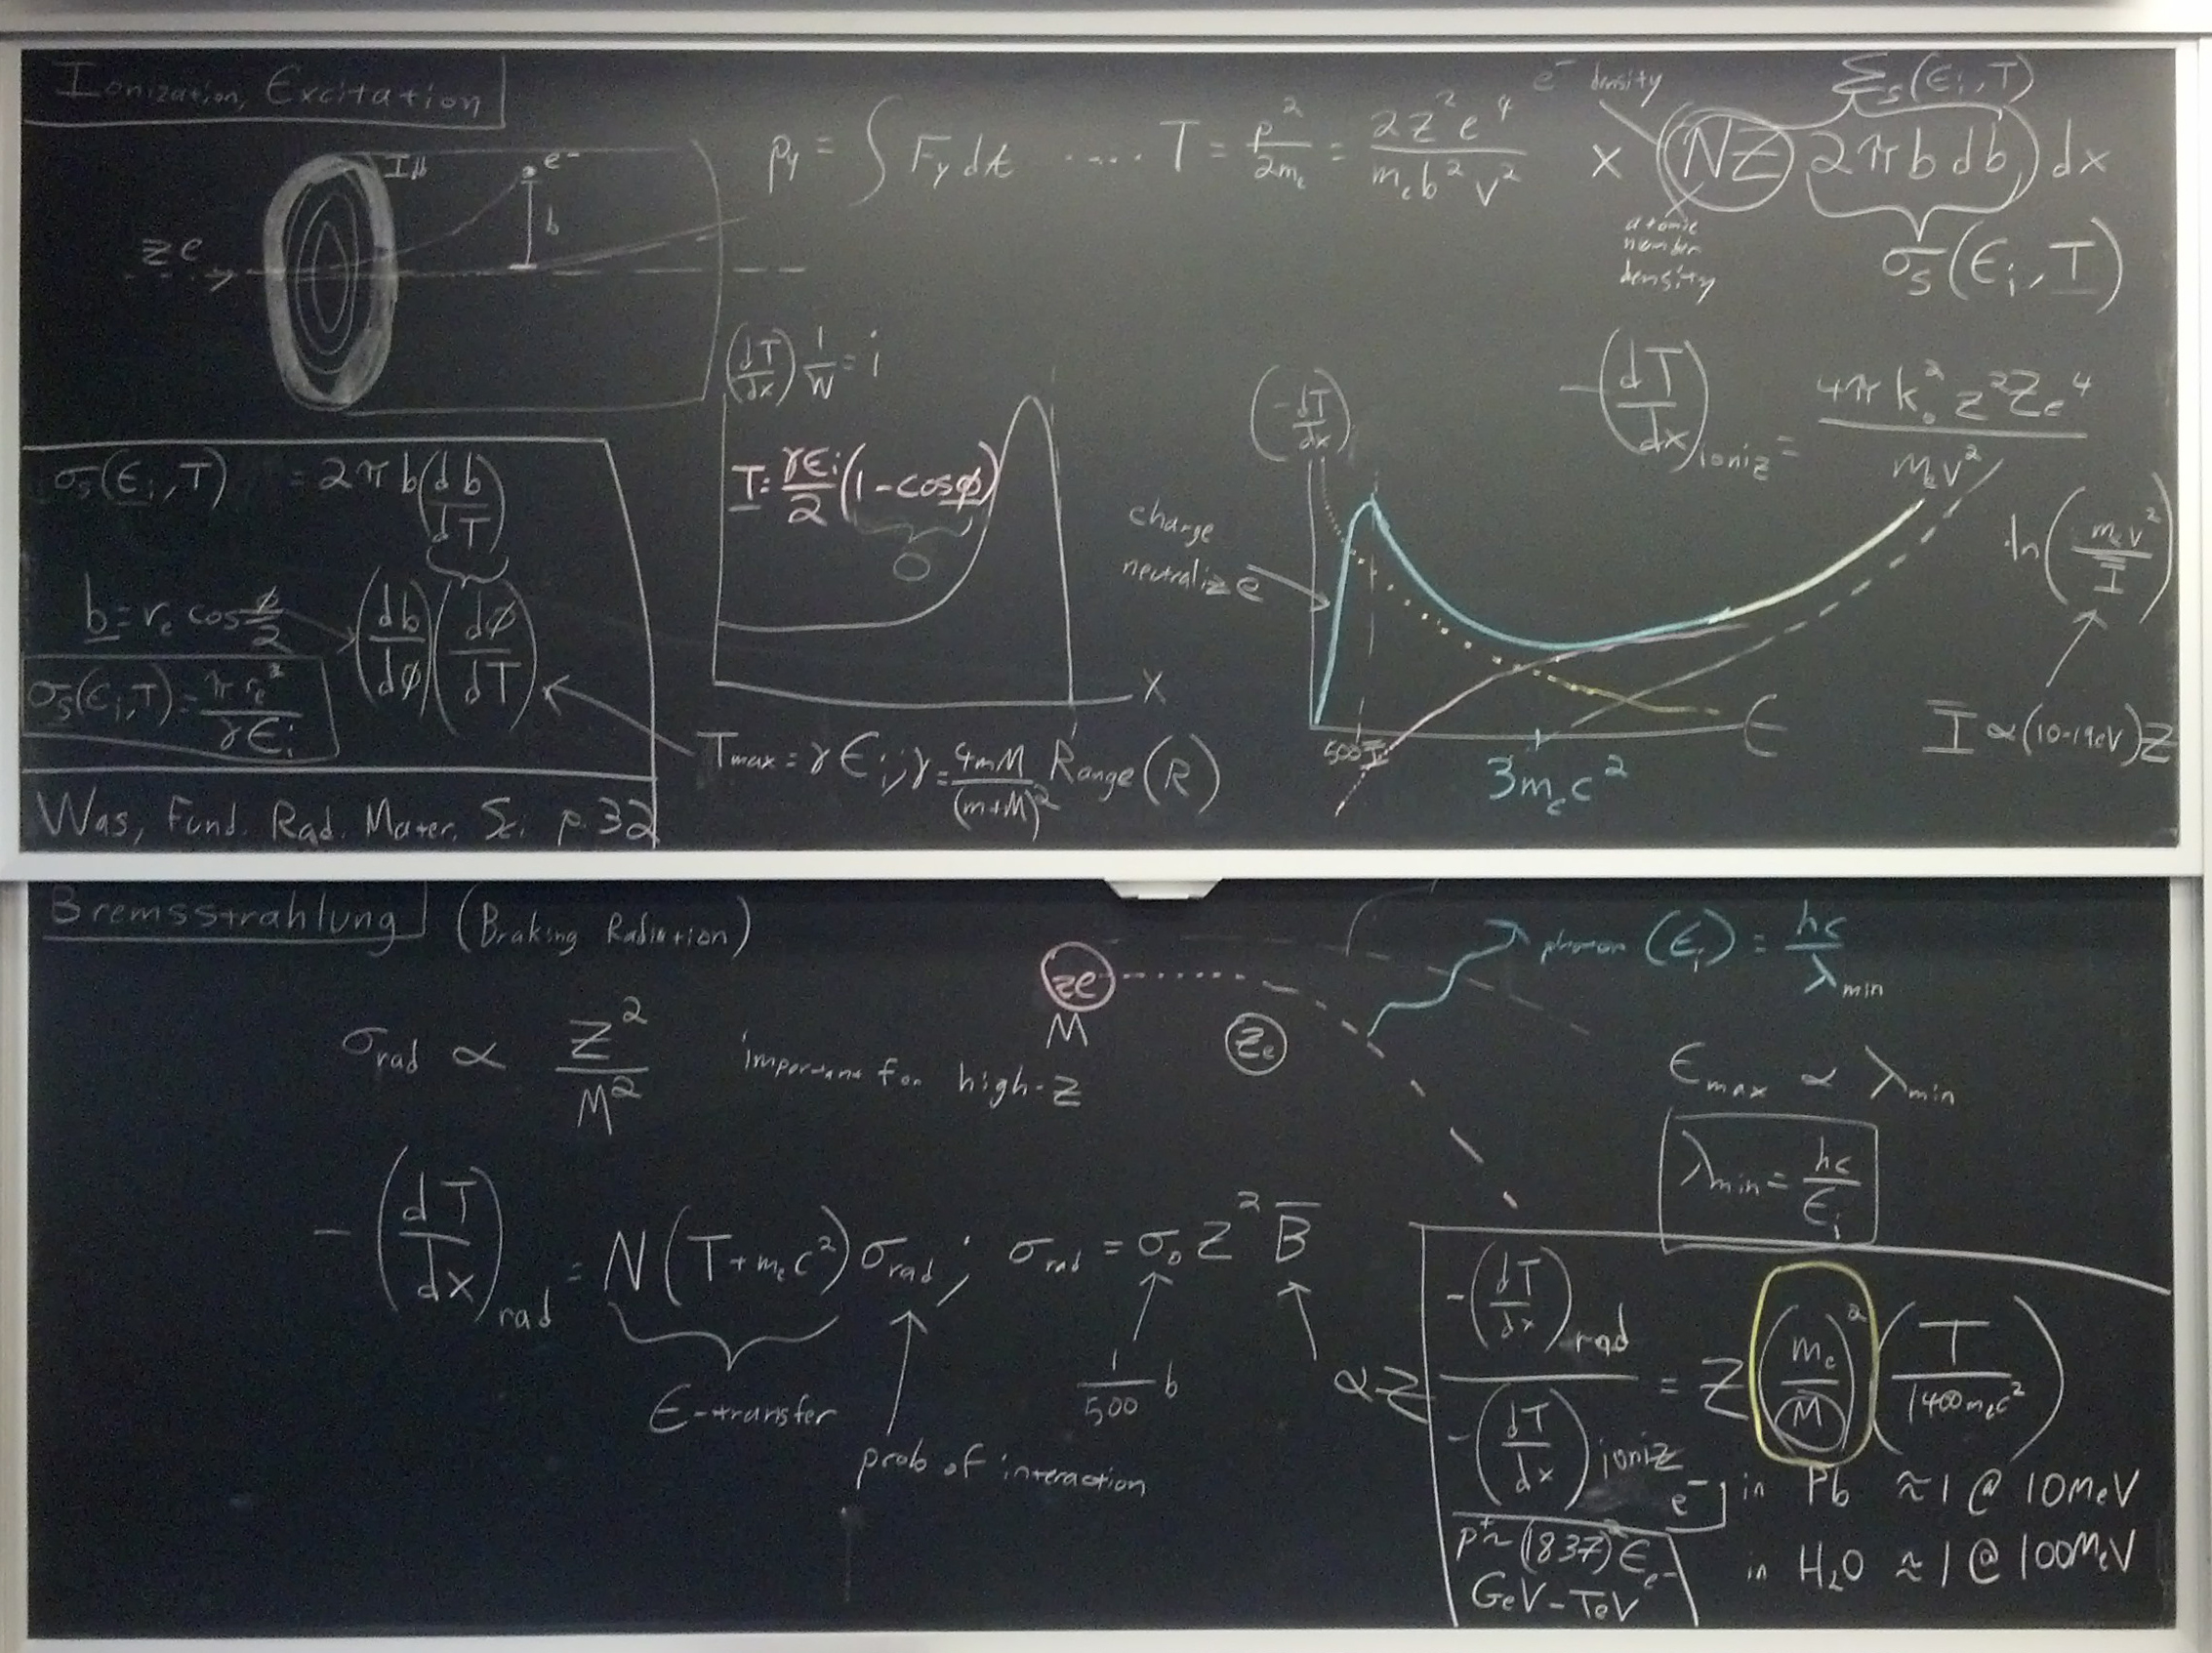 Ionization, Excitation
ze
e⁻
b
p_y = ∫ F_y dt .... T = p²/2m_e = 2z²e⁴/m_e b² v² × (NZ) 2πb db) dx
e⁻ density
Σ_s(ϵ_i, T)
atomic number density
σ_s(ϵ_i, T)
σ_s(ϵ_i, T) = 2πb(db/dT)
b = r_c cos ϕ/2
(db/dϕ)(dϕ/dT)
σ_s(ϵ_i, T) = πr_c²/γϵ_i
Was, Fund. Rad. Mater. Sci. p. 32
(dT/dx) 1/W = i
T = γϵ_i/2 (1 - cosϕ)
0
x
Range (R)
T_max = γϵ_i; γ = 4mM/(m+M)²
(-dT/dx)
charge neutralize
500Ī
3m_ec²
ϵ
-(dT/dx)_ioniz = 4πk₀²z²Ze⁴/m_ev²
ln(m_ev²/Ī)
Ī ∝ (10-19eV)Z
Bremsstrahlung (Braking Radiation)
ze
M
Ze
photon (ϵ_i) = hc/λ_min
σ_rad ∝ Z²/M² important for high-Z
ϵ_max ∝ λ_min
λ_min = hc/ϵ_i
-(dT/dx)_rad = N(T+m_ec²)σ_rad; σ_rad = σ₀Z²B̄
ϵ-transfer
prob of interaction
1/500 b
∝Z
-(dT/dx)_rad / -(dT/dx)_ioniz = Z (m_e/M)² (T/1400m_ec²)
e⁻ in Pb ≈ 1 @ 10MeV
in H₂O ≈ 1 @ 100MeV
p⁺ ~ (1837)²ϵ_e⁻
GeV-TeV